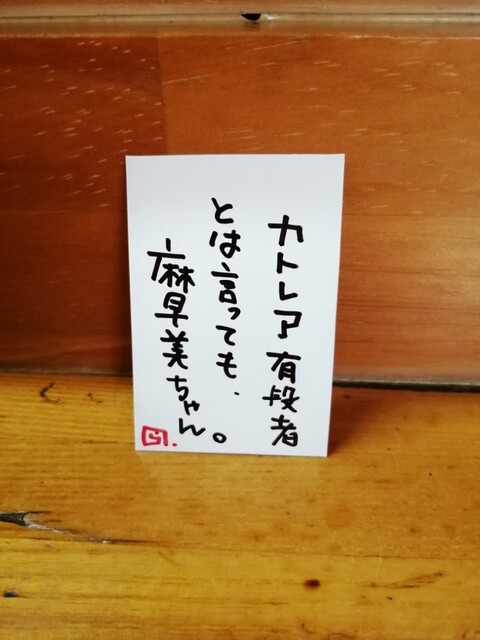 カトレア有段者
とは言っても、
麻早美ちゃん。